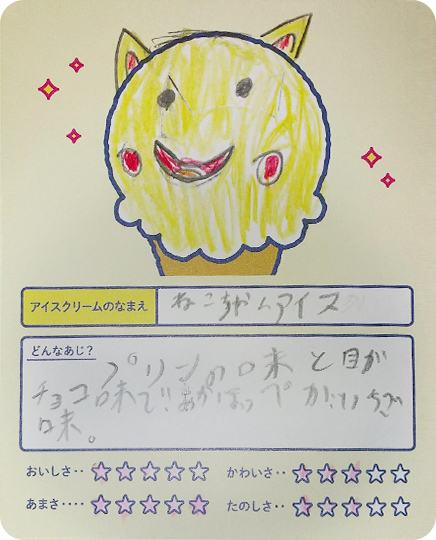 アイスクリームのなまえ
ねこちゃんアイス
どんなあじ？
プリンの味と目が
チョコ味で！あかほっぺがいちご
味。
おいしさ‥ ☆☆☆☆☆
かわいさ‥ ☆☆☆☆☆
あまさ‥‥ ☆☆☆☆☆
たのしさ‥ ☆☆☆☆☆